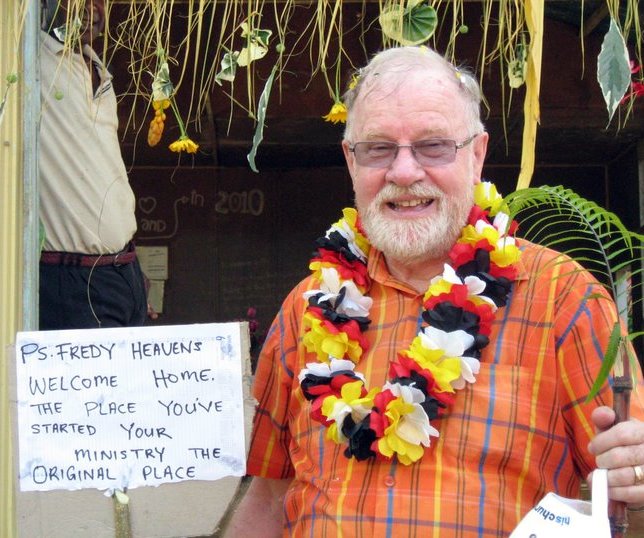 in 2010
and
PS. FREDY HEAVENS
WELCOME HOME.
THE PLACE YOU'VE
STARTED YOUR
MINISTRY THE
ORIGINAL PLACE
nischu